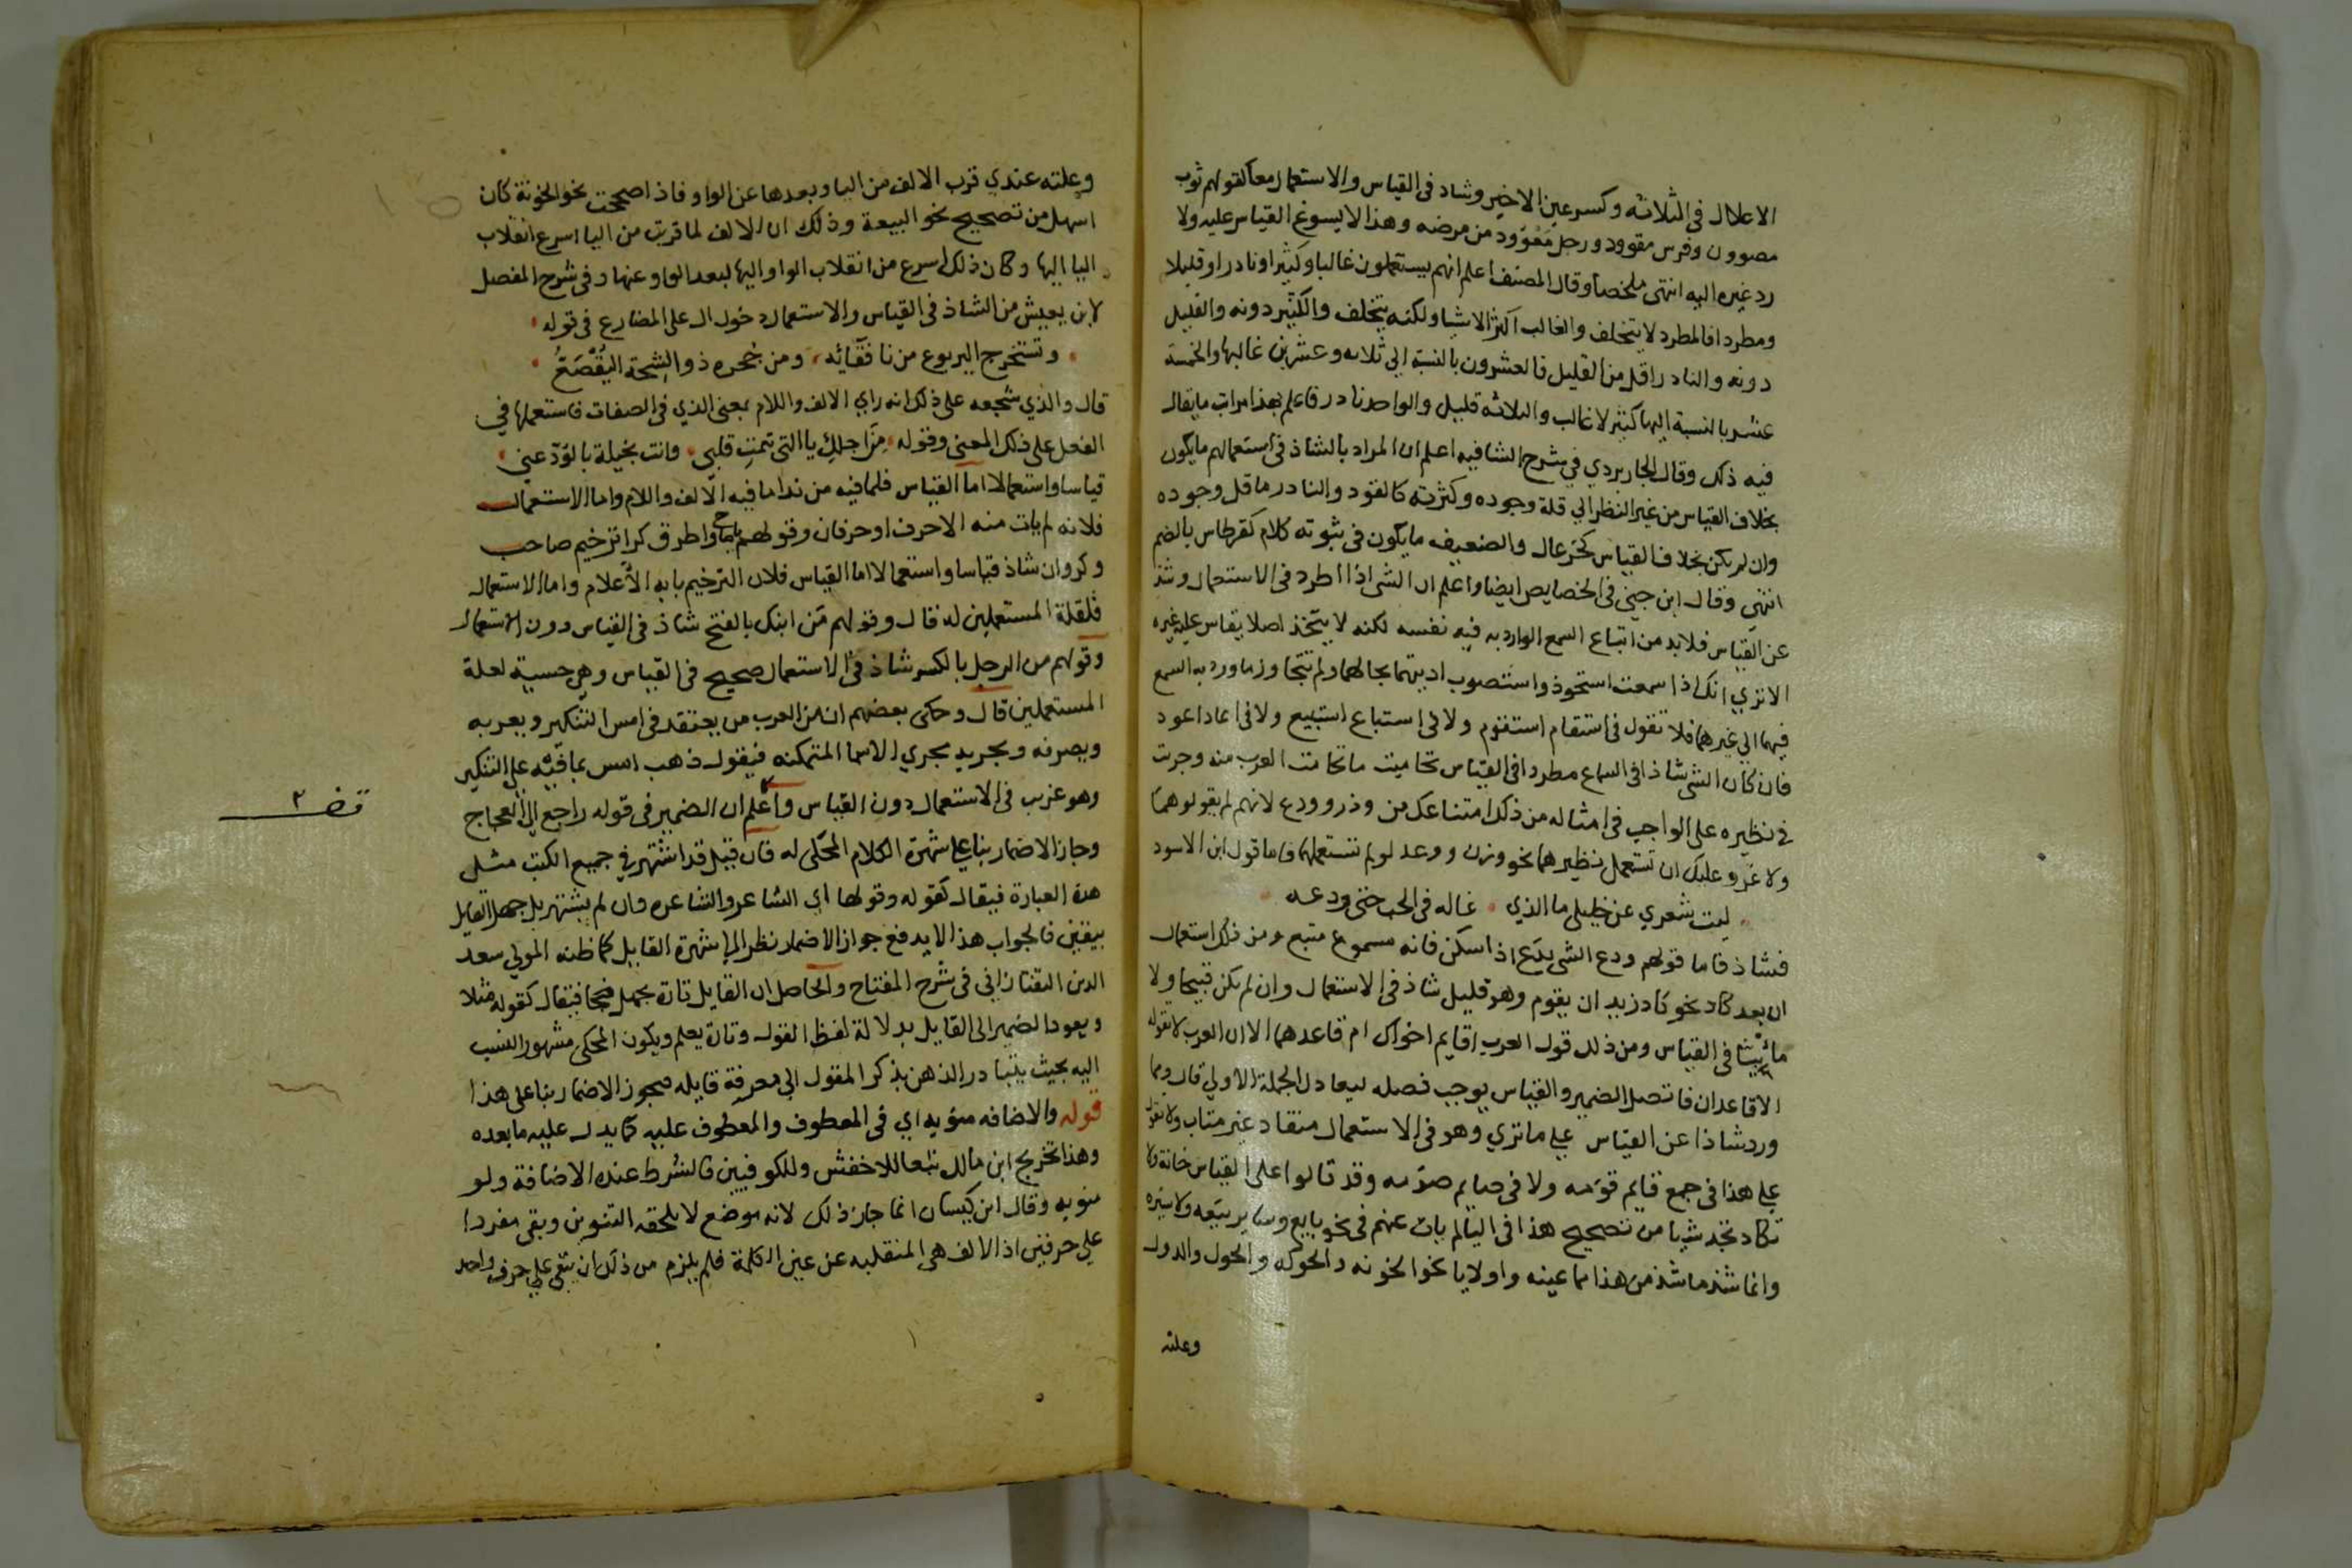 الاعلال فى الثلاثه وكسر عين الاخير وشاد فى القياس والاستعمال معا كقولهم ثوب
مصوون وفرس مقوود ورجل معوود من مرضه وهذا لا يسوغ القياس عليه ولا
رد غيره اليه انتهى ملخصا وقال المصنف اعلم انهم يستعملون غالبا وكثيرا ونادرا وقليلا
ومطردا فالمطرد لا يتخلف والغالب اكثر الاشيا ولكنه يتخلف والكثير دونه والقليل
دونه والنادر اقل من القليل فالعشرون بالنسبة الى ثلاثه وعشرين غالبها والخمسة
عشر بالنسبة اليها كثير لا غالب والثلاثه قليل والواحد نادر فاعلم بهذا مراتب ما يقال
فيه ذلك وقال الجاربردي في شرح الشافيه اعلم ان المراد بالشاذ فى استعمالهم ما يكون
بخلاف القياس من غير النظر الي قلة وجوده وكثرته كالقود والنادر ما قل وجوده
وان لم يكن بخلاف القياس كخزعال والضعيف ما يكون فى ثبوته كلام كقرطاس بالضم
انتهى وقال ابن جني فى الخصايص ايضا واعلم ان الشى اذا اطرد فى الاستعمال وشذ
عن القياس فلا بد من اتباع السمع الوارد به فيه نفسه لكنه لا يتخذ اصلا يقاس عليه غيره
الا تري انك اذا سمعت استحوذ واستصوب اديتهما بحالهما ولم تتجاوز ما ورد به السمع
فيهما الي غيرهما فلا تقول فى استقام استقوم ولا فى استباع استبيع ولا فى اعاد اعود
فان كان الشى شاذا فى السماع مطردا فى القياس تحاميت ما تحامت العرب منه وجرت
فى نظيره على الواجب فى امثاله من ذلك امتناعك من وذر وودع لانهم لم يقولوهما
ولا غرو عليك ان تستعمل نظيرهما نحو وزن ووعد لو لم تستعملهما فاما قول ابن الاسود
ليت شعري عن خليلي ما الذي غاله فى الحب حتى ودعه
فشاذ فاما قولهم ودع الشى يدع اذا سكن فانه مسموع متبع ومن ذلك استعمال
ان بعد كاد نحو كاد زيد ان يقوم وهو قليل شاذ فى الاستعمال وان لم يكن قبيحا ولا
فى القياس ومن ذلك قول العرب اقايم اخواك ام قاعدهما الا ان العرب لا تقوله
الا قاعدان فاتصل الضمير والقياس يوجب فصله ليعادل الجملة الاولي قال ومما
ورد شاذا عن القياس علي ما تري وهو فى الاستعمال منقاد غير متاب ولا تقول
علي هذا فى جمع قايم قومه ولا فى صايم صومه وقد قالوا على القياس خانة ولا
تكاد تجد شيا من تصحيح هذا فى اليا لم يات عنهم فى نحو بايع وساير بيعه ولا سيره
وانما شذ ما شذ من هذا مما عينه واو لا يا نحو الخونه والحوكه والحول والدول
وعلته
وعلته عندي قرب الالف من اليا وبعدها عن الواو فاذا صححت نحو الخونة كان
اسهل من تصحيح نحو البيعة وذلك ان الالف لما قربت من اليا اسرع انقلاب
اليا اليها وكان ذلك اسرع من انقلاب الواو اليها لبعد الواو عنها وفى شرح المفصل
لابن يعيش من الشاذ فى القياس والاستعمال دخول ال على المضارع فى قوله
وتستخرج اليربوع من نافقائه ومن جحره ذو الشيحة اليقصع
قال والذي شجعه على ذلك انه راي الالف واللام بمعنى الذي فى الصفات فاستعملها في
الفعل على ذلك المعنى وقوله من اجلك يا التى تيمت قلبي وانت بخيلة بالود عني
قياسا واستعمالا اما القياس فلما فيه من ندا ما فيه الالف واللام واما الاستعمال
فلانه لم يات منه الا حرف او حرفان وقولهم يا صاح واطرق كرا ترخيم صاحب
وكروان شاذ قياسا واستعمالا اما القياس فلان الترخيم بابه الاعلام واما الاستعمال
فلقلة المستعملين له قال وقولهم من ابنك بالفتح شاذ فى القياس دون الاستعمال
وقولهم من الرجل بالكسر شاذ فى الاستعمال صحيح فى القياس وهي حسية لعلة
المستعملين قال وحكى بعضهم ان من العرب من يعتقد فى امس التنكير ويعربه
ويصرفه ويجريه مجري الاسما المتمكنه فيقول ذهب امس بما فيه علي التنكير
وهو غريب فى الاستعمال دون القياس واعلم ان الضمير فى قوله راجع الى العجاج
قف ٢
وجاز الاضمار بنا على شهرة الكلام المحكى له فان قيل قد اشتهر في جميع الكتب مثل
هذه العبارة فيقال كقوله وقولها اي الشاعر والشاعره وان لم يشتهر بل جهل القايل
بيقين فالجواب هذا لا يدفع جواز الاضمار نظر الي شهرة القايل كما ظنه المولي سعد
الدين التفتازاني فى شرح المفتاح والحاصل ان القايل تارة يجهل فيقال كقوله مثلا
ويعود الضمير الى القايل بدلالة لفظ القول وتارة يعلم ويكون المحكى مشهور النسب
اليه بحيث يتبادر الذهن بذكر المقول الي معرفة قايله فيجوز الاضمار بنا على هذا
قوله والاضافه منويه اي فى المعطوف والمعطوف عليه كما يدل عليه ما بعده
وهذا تخريج ابن مالك تبعا للاخفش وللكوفيين فالشرط عنده الاضافة ولو
منويه وقال ابن كيسان انما جاز ذلك لانه موضع لا يلحقه التنوين وبقى مفردا
علي حرفين اذ الالف هي المنقلبه عن عين الكلمة فلم يلزم من ذلك ان يبقى علي حرف واحد